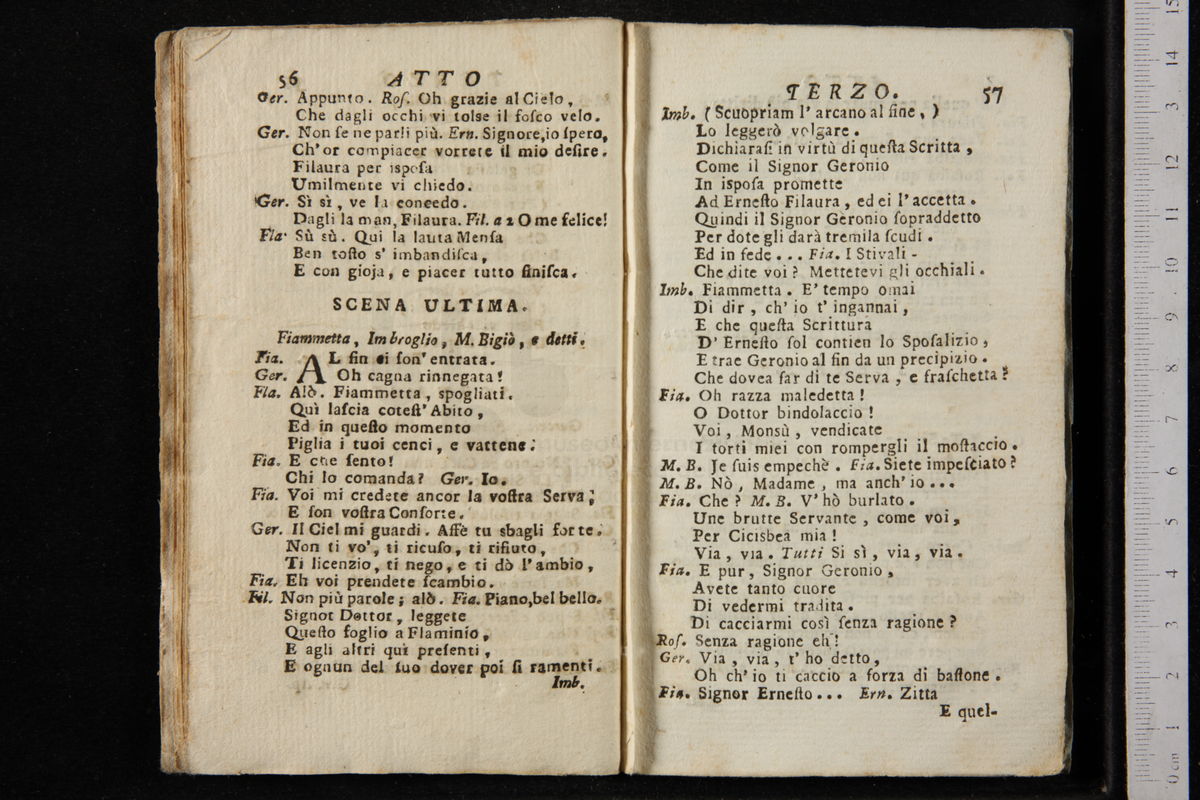 56 ATTO
Ger. Appunto. Roſ. Oh grazie al Cielo,
Che dagli occhi vi tolse il foſco velo.
Ger. Non ſe ne parli più. Ern. Signore, io ſpero,
Ch' or compiacer vorrete il mio deſire.
Filaura per iſpoſa
Umilmente vi chiedo.
Ger. Sì sì, ve la concedo.
Dagli la man, Filaura. Fil. a 2 O me felice!
Fla. Sù sù. Qui la lauta Menſa
Ben toſto s' imbandiſca,
E con gioja, e piacer tutto finiſca.
SCENA ULTIMA.
Fiammetta, Imbroglio, M. Bigiò, e detti.
Fia. AL fin ci ſon' entrata.
Ger. Oh cagna rinnegata!
Fla. Alò. Fiammetta, spogliati.
Quì laſcia coteſt' Abito,
Ed in queſto momento
Piglia i tuoi cenci, e vattene.
Fia. E che ſento!
Chi lo comanda? Ger. Io.
Fia. Voi mi credete ancor la voſtra Serva;
E ſon voſtra Conſorte.
Ger. Il Ciel mi guardi. Affè tu sbagli forte.
Non ti vo', ti ricuſo, ti rifiuto,
Ti licenzio, ti nego, e ti dò l' ambio,
Fia. Eh voi prendete ſcambio.
Fil. Non più parole; alò. Fia. Piano, bel bello.
Signor Dottor, leggete
Queſto foglio a Flaminio,
E agli altri quì preſenti,
E ognun del ſuo dover poi ſi ramenti.
Imb.
TERZO. 57
Imb. (Scuopriam l' arcano al fine,)
Lo leggerò volgare.
Dichiaraſi in virtù di queſta Scritta,
Come il Signor Geronio
In iſpoſa promette
Ad Erneſto Filaura, ed ei l' accetta.
Quindi il Signor Geronio ſopraddetto
Per dote gli darà tremila ſcudi.
Ed in fede... Fia. I Stivali-
Che dite voi? Mettetevi gli occhiali.
Imb. Fiammetta. E' tempo omai
Di dir, ch' io t' ingannai,
E che queſta Scrittura
D' Erneſto ſol contien lo Spoſalizio,
E trae Geronio al fin da un precipizio.
Che dovea far di te Serva, e fraſchetta?
Fia. Oh razza maledetta!
O Dottor bindolaccio!
Voi, Monsù, vendicate
I torti miei con rompergli il moſtaccio.
M. B. Je ſuis empechè. Fia. Siete impeſciato?
M. B. Nò, Madame, ma anch' io...
Fia. Che? M. B. V' hò burlato.
Une brutte Servante, come voi,
Per Cicisbea mia!
Via, via. Tutti Si sì, via, via.
Fia. E pur, Signor Geronio,
Avete tanto cuore
Di vedermi tradita.
Di cacciarmi così ſenza ragione?
Roſ. Senza ragione eh!
Ger. Via, via, t' ho detto,
Oh ch' io ti caccio a forza di baſtone.
Fia. Signor Erneſto... Ern. Zitta
E quel-